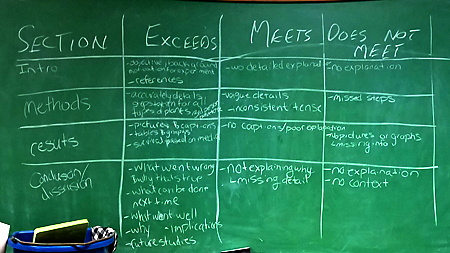 SECTION EXCEEDS MEETS DOES NOT MEET
Intro
- references
- no detailed explained
- no explanation
methods
- accurately details
steps for all
types of plates
- vague details
- inconsistent tense
- missed steps
results
- pictures & captions
- tables & graphs
- survival based on media
- no captions/poor explanation
- no pictures or graphs
↳ missing info
Conclusion/
discussion
- what went wrong
- what can be done
next time
- what went well
- why - implications
- future studies
- not explaining why
↳ missing detail
- no explanation
- no context